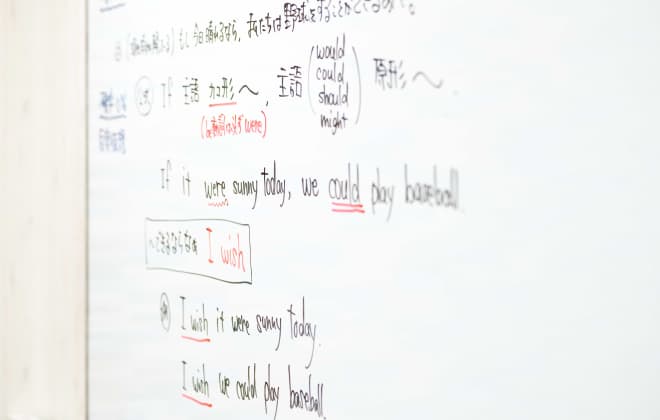 もし今日晴れるなら、私たちは野球をすることができるのに。
公式 If 主語 過去形〜, 主語 would could should might 原形〜
(be動詞は必ず were)
If it were sunny today, we could play baseball.
〜できるならなぁ I wish
例 I wish it were sunny today.
I wish we could play baseball.